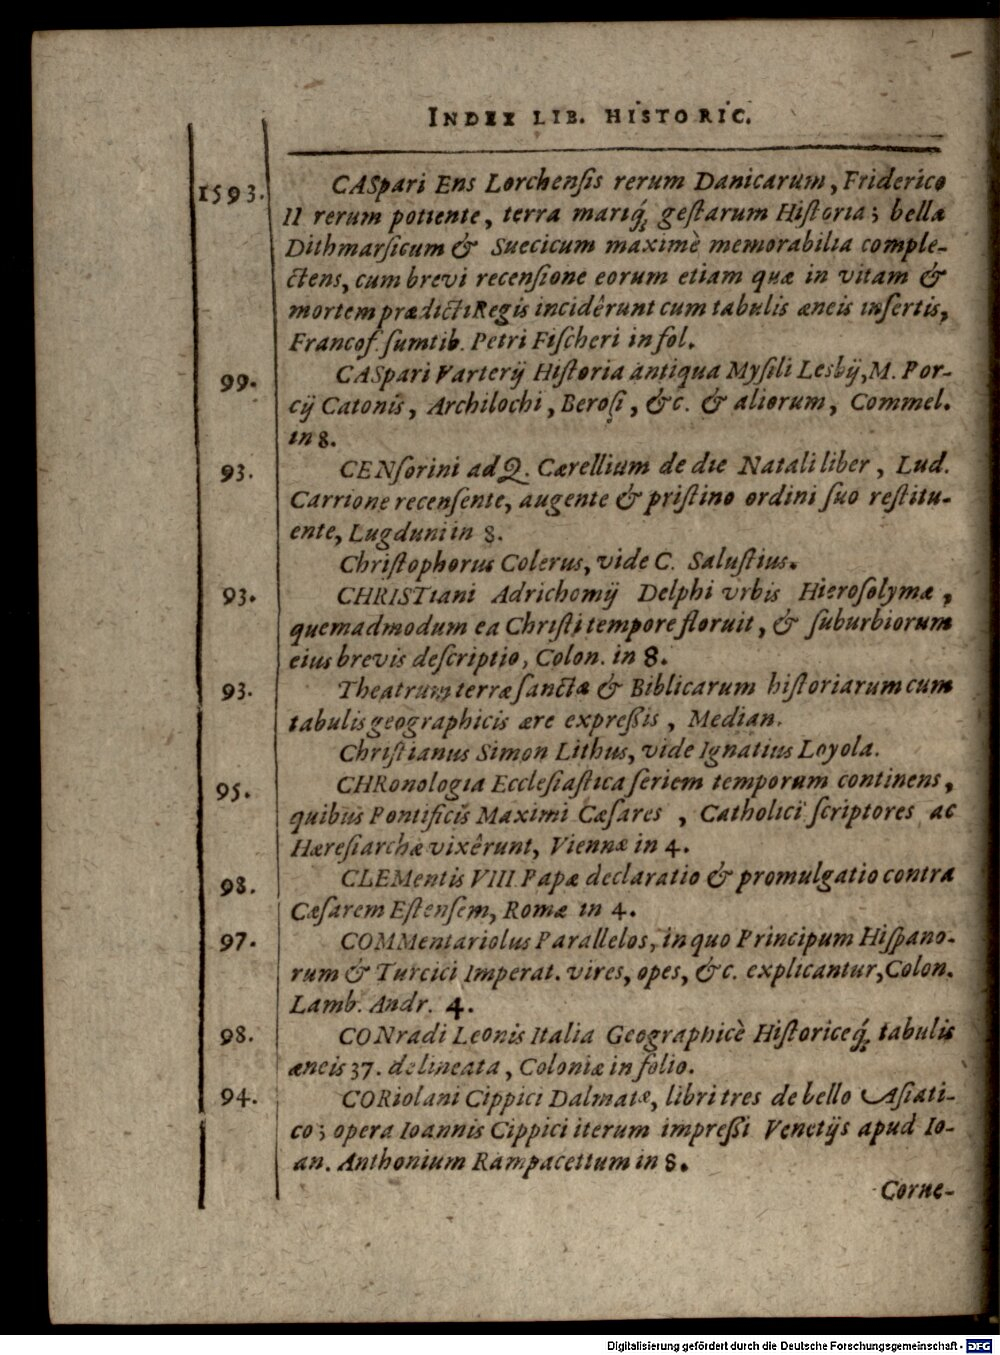 INDEX LIB. HISTORIC.
1593. CASpari Ens Lorchenſis rerum Danicarum, Friderico
II rerum potiente, terra mariq́; geſtarum Hiſtoria; bella
Dithmarſicum & Suecicum maximè memorabilia comple-
ctens, cum brevi recenſione eorum etiam quæ in vitam &
mortem prædicti Regis incidêrunt cum tabulis æneis inſertis,
Francof. ſumtib. Petri Fiſcheri in fol.
99. CASpari Varterij Hiſtoria antiqua Myſili Lesbij, M. Por-
cij Catonis, Archilochi, Beroſi, &c. & aliorum, Commel.
in 8.
93. CENſorini ad Q. Cærellium de die Natali liber, Lud.
Carrione recenſente, augente & priſtino ordini ſuo reſtitu-
ente, Lugduni in 8.
Chriſtophorus Colerus, vide C. Saluſtius.
93. CHRISTiani Adrichomij Delphi vrbis Hieroſolymæ,
quemadmodum ea Chriſti tempore floruit, & ſuburbiorum
eius brevis deſcriptio, Colon. in 8.
93. Theatrum terræ ſanctæ & Biblicarum hiſtoriarum cum
tabulis geographicis ære expreſſis, Median.
Chriſtianus Simon Lithus, vide Ignatius Loyola.
95. CHRonologia Eccleſiaſtica ſeriem temporum continens,
quibus Pontificis Maximi Cæſares, Catholici ſcriptores ac
Hæreſiarchæ vixêrunt, Viennæ in 4.
98. CLEMentis VIII. Papæ declaratio & promulgatio contra
Cæſarem Eſtenſem, Romæ in 4.
97. COMMentariolus Parallelos, in quo Principum Hiſpano-
rum & Turcici Imperat. vires, opes, &c. explicantur, Colon.
Lamb. Andr. 4.
98. CONradi Leonis Italia Geographicè Hiſtoriceq́; tabulis
æneis 37. delineata, Coloniæ in folio.
94. CORiolani Cippici Dalmatæ, libri tres de bello Aſiati-
co; opera Ioannis Cippici iterum impreſſi Venetijs apud Io-
an. Anthonium Rampacettum in 8.
Corne-
Digitalisierung gefördert durch die Deutsche Forschungsgemeinschaft - DFG